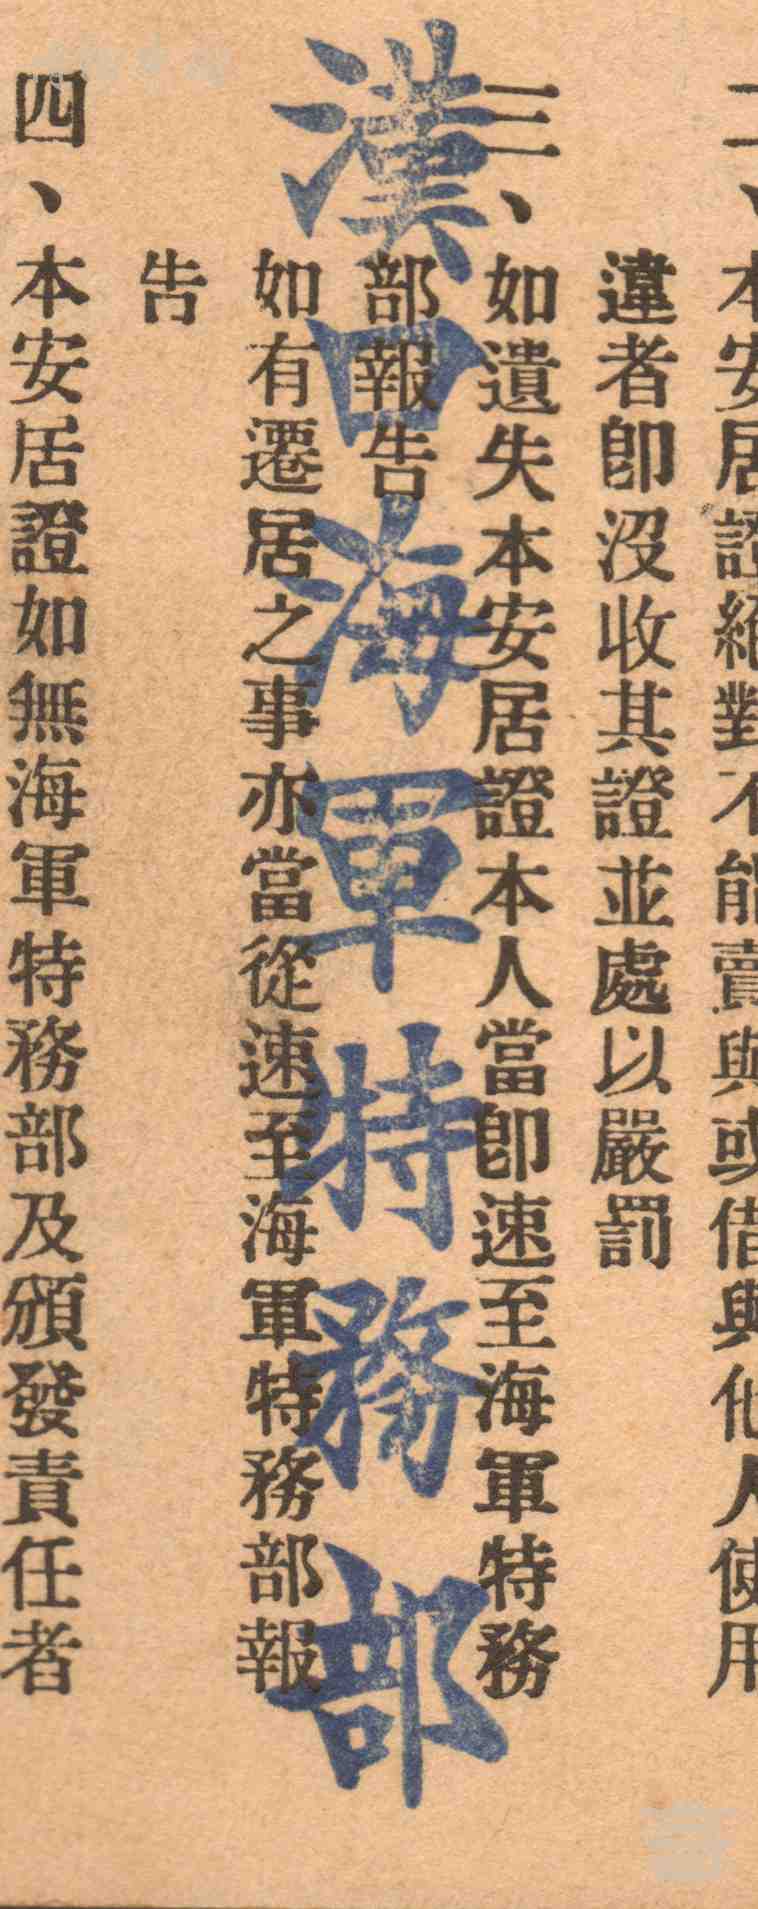 二、本安居證絕對不能賣與或借與他人使用
違者卽沒收其證並處以嚴罰
三、如遺失本安居證本人當卽速至海軍特務
部報告
如有遷居之事亦當從速至海軍特務部報
告
四、本安居證如無海軍特務部及頒發責任者
漢口海軍特務部